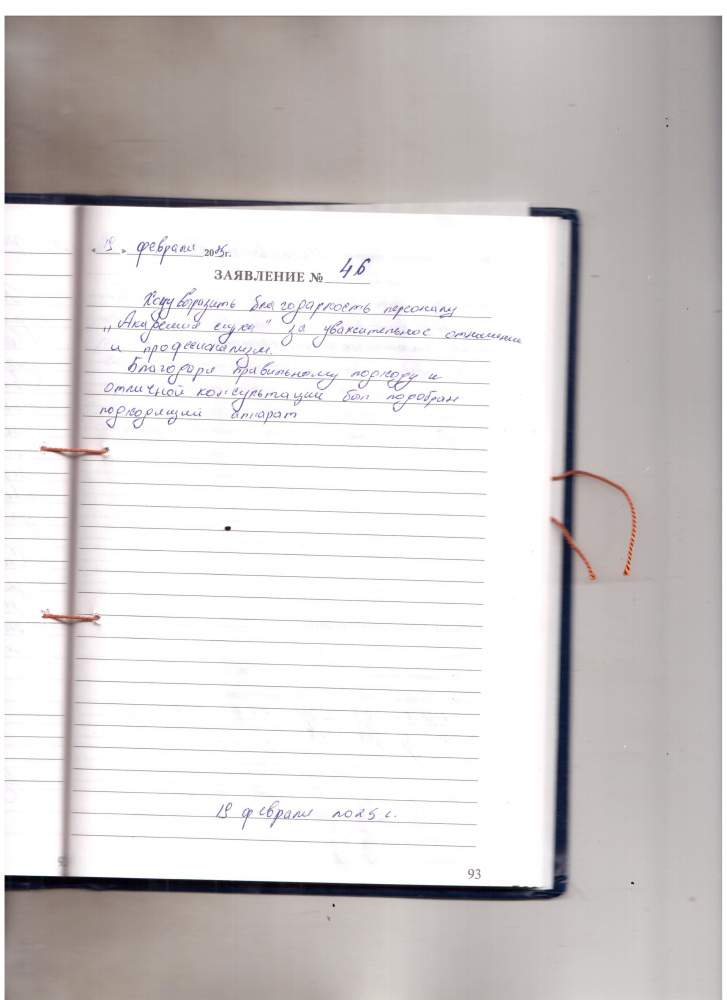 « 19 » февраля 2025г.
ЗАЯВЛЕНИЕ № 46
Хочу выразить благодарность персоналу
„Академия слуха" за уважительное отношение
и професионализм.
Благодаря правильному подходу и
отличной консультации был подобран
подходящий аппарат
19 февраля 2025 г.
93